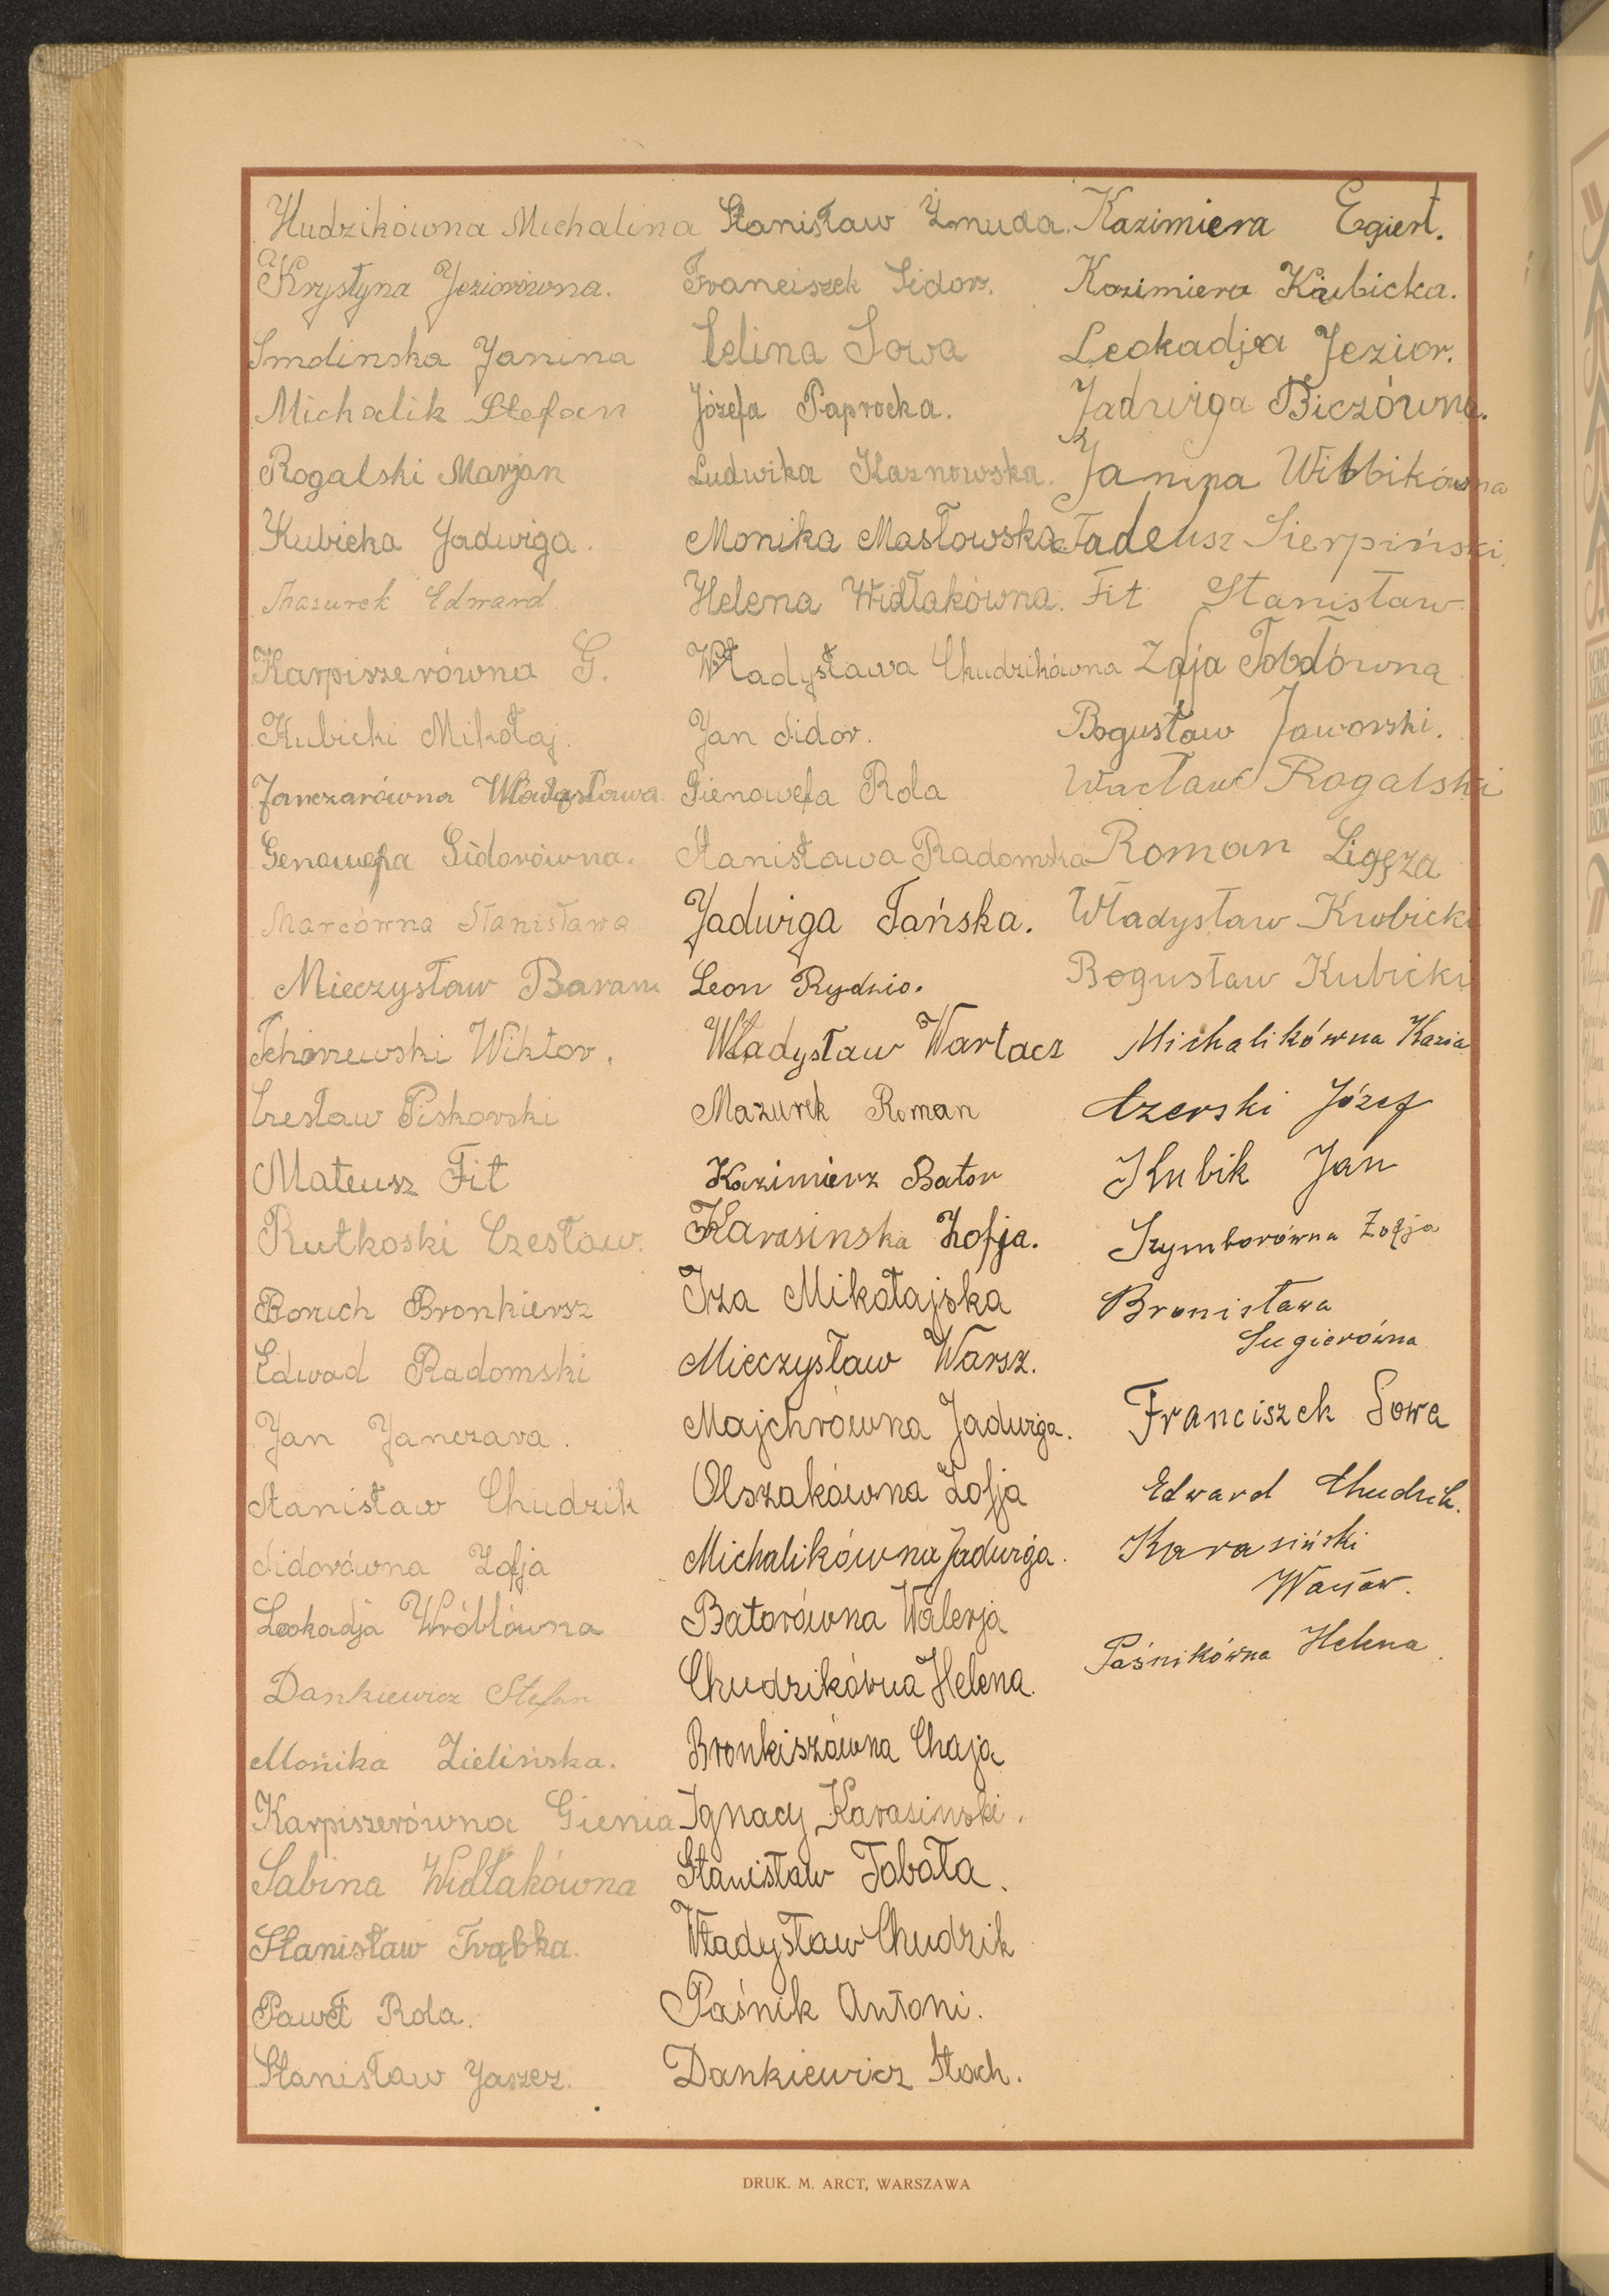 Hudzikówna Michalina
Krystyna Jeziorówna.
Smolinska Janina
Michalik Stefan
Rogalski Marjan
Kubicka Jadwiga.
Mazurek Edward
Karpiszerówna G.
Kubicki Mikołaj.
Janczarówna Władysława
Genowefa Sidorówna.
Marcówna Stanisława
Mieczysław Baran
Tchorzewski Wiktor.
Czesław Piskorski
Mateusz Fit
Rutkoski Czesław.
Boruch Bronkiersz
Edwad Radomski
Jan Janczara.
Stanisław Chudzik
Sidorówna Zofja
Leokadja Wróblówna
Dankiewicz Stefan
Monika Zielińska.
Karpiszerówna Gienia
Sabina Widłakówna
Stanisław Trąbka.
Paweł Rola.
Stanisław Jaszcz.
Stanisław Żmuda.
Franciszek Sidor.
Celina Sowa
Józefa Paprocka.
Ludwika Kaznowska.
Monika Masłowska
Helena Widłakówna.
Władysława Chudzikówna
Jan Sidor.
Gienowefa Rola
Stanisława Radomska
Jadwiga Tańska.
Leon Rydzio.
Władysław Wartacz
Mazurek Roman
Kazimierz Bator
Karasinska Zofja.
Iza Mikołajska
Mieczysław Warsz.
Majchrówna Jadwiga.
Olszakówna Zofja
Michalikówna Jadwiga.
Batorówna Walerja
Chudzikówna Helena.
Bronkiszówna Chaja
Ignacy Karasinski.
Stanisław Toboła.
Władysław Chudzik
Paśnik Antoni.
Dankiewicz Stach.
Kazimiera Egiert.
Kazimiera Kubicka.
Leokadja Jezior.
Jadwiga Biczówna.
Janina Witbikówna
Tadeusz Sierpiński.
Fit Stanisław
Zofja
Bogusław Jaworski.
Wacław Rogalski
Roman Ligęza
Władysław Kubicki
Bogusław Kubicki
Michalikówna Kazia
Czerski Józef
Kubik Jan
Szymborówna Zofja
Bronisława
Sugierówna
Franciszek Sowa
Edward Chudzik.
Karasiński
Wacław.
Paśnikówna Helena.
DRUK. M. ARCT, WARSZAWA